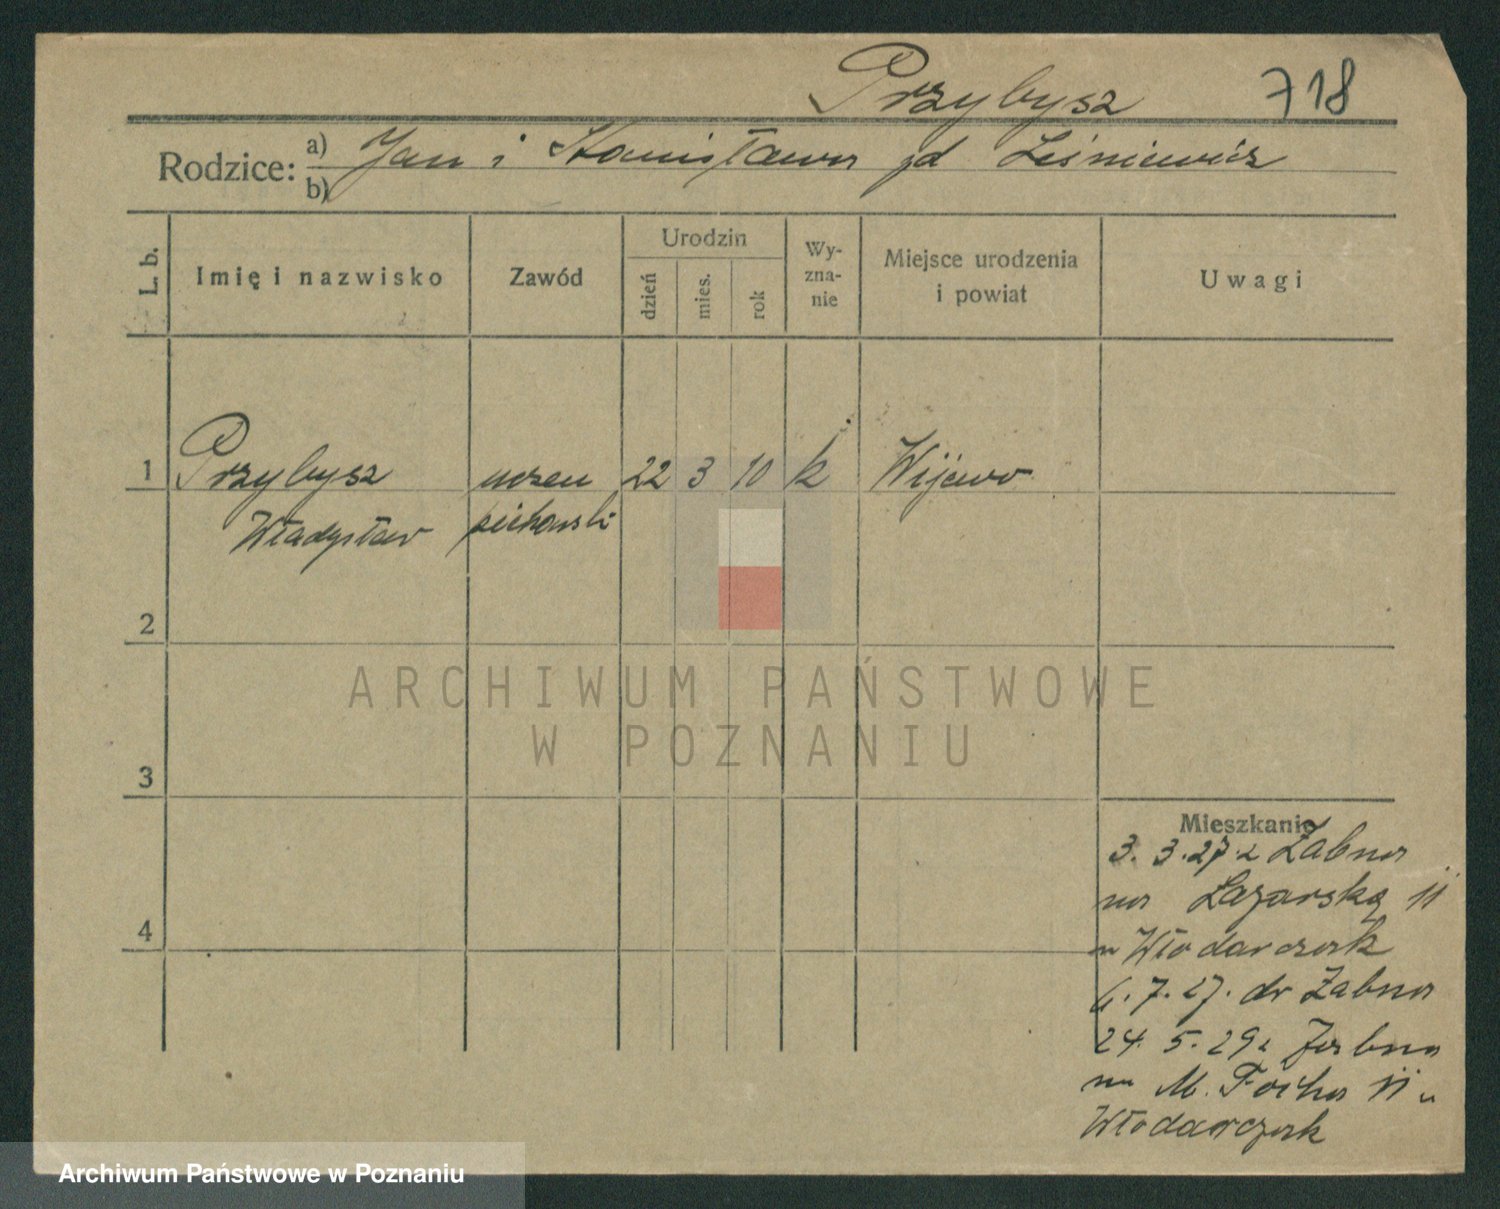 Przybysz 718
Rodzice: a) Jan i Stanisława zd Leśniewicz
b)
L. b.
Imię i nazwisko
Zawód
Urodzin
dzień
mies.
rok
Wy-
zna-
nie
Miejsce urodzenia
i powiat
Uwagi
1 Przybysz uczeń 22 3 10 k Wijewo
Władysław piekarski
2
3
4
Mieszkanie
3. 3. 27 z Żabna
na Łazarską 11
u Włodarczak
6. 7. 27. do Żabna
24. 5. 29 z Żabna
na M. Focha 11 u
Włodarczak
ARCHIWUM PAŃSTWOWE
W POZNANIU
Archiwum Państwowe w Poznaniu